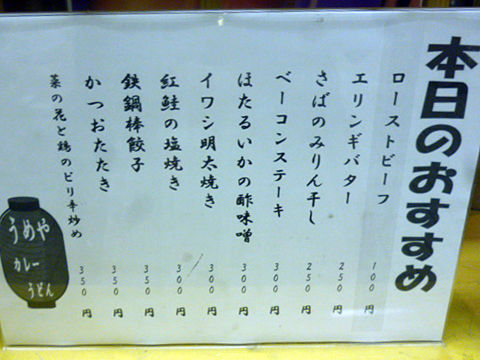 本日のおすすめ
ローストビーフ 100円
エリンギバター 250円
さばのみりん干し 250円
ベーコンステーキ 300円
ほたるいかの酢味噌 300円
イワシ明太焼き 300円
紅鮭の塩焼き 300円
鉄鍋棒餃子 350円
かつおたたき 350円
菜の花と鶏のピリ辛炒め 350円
うめや
カレー
うどん